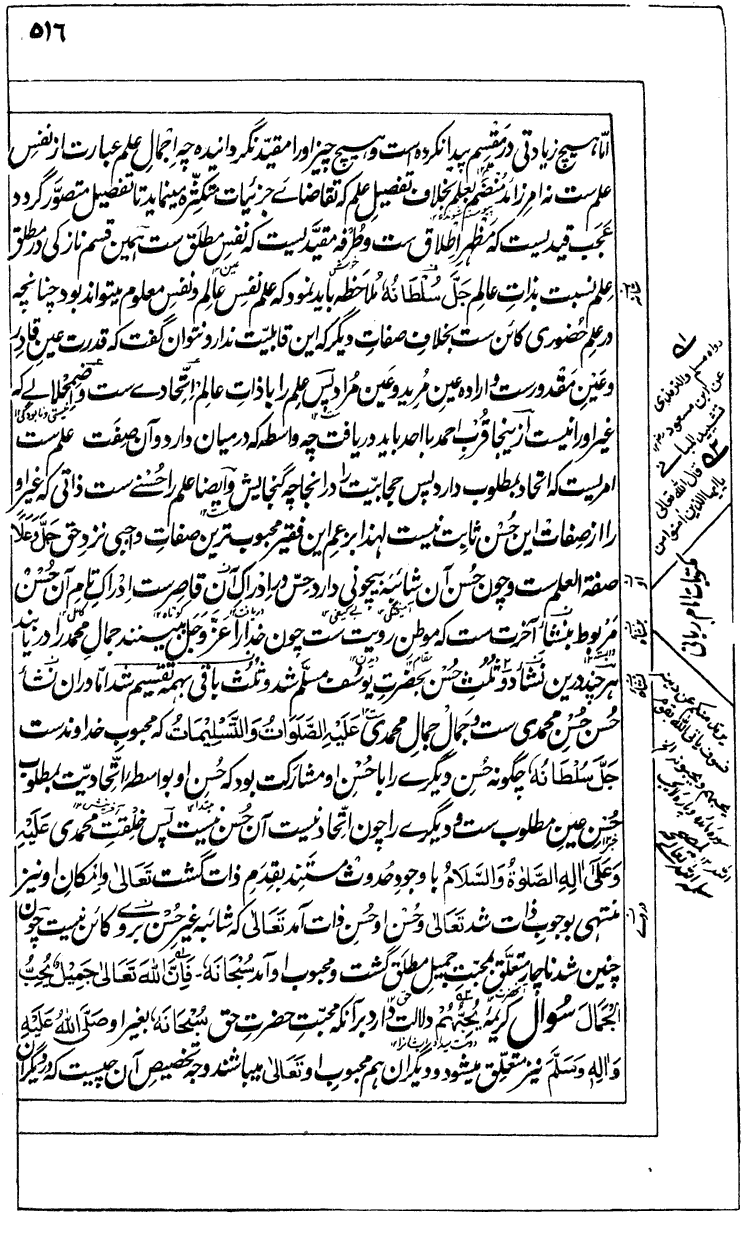 ۵۱۶
امّا هیچ زیادتی در مَقْسِم پیدا نکرده است و هیچ چیز او را مقیّد نگردانیده چه اِجمالِ علم عبارت از نفسِ
علم ست نه امرِ زائد مُنْضَم بعلم بخلاف تفصیل علم که تقاضائے جزئیات متکثّره مینماید تا تفصیل متصوّر گردد
عجب قیدیست که مَظْهرِ اِطلاق ست و طُرفه مقیّدیست که نفسِ مطلق ست همین قسم نازکی در مطلق
عِلم نسبت بذاتِ عالِم جَلَّ سُلْطَانُهٗ مُلاحَظه باید نمود که علم نفسِ عالِم و نفسِ معلوم میتواند بود چنانچه
در علمِ حُضوری کائن ست بخلافِ صفاتِ دیگر که این قابلیّت ندارد نتوان گفت که قدرت عینِ قادِر
و عینِ مَقْدورست و اراده عینِ مُرید و عینِ مراد پس علم را با ذاتِ عالم اِتّحادے ست و اِضْمِحْلالے که
غیر او را نیست ازینجا قُربِ احمد با احد باید دریافت چه واسطه که درمیان دارد و آن صِفَت علم ست
امریست که اتحاد بمطلوب دارد پس حجابیّت را در انجا چه گنجایش و اَیضا علم را حُسنے ست ذاتی که غیر او
را از صفات این حُسن ثابت نیست لهٰذا بزعم این فقیر محبوب‌ترین صفاتِ واجبی نزد حق جَلَّ وَعَلَا
صفة العلم ست و چون حُسنِ آن شائبۀ بیچونی دارد حِسّ در اِدراکِ آن قاصِر ست اِدراکِ تامِ آن حُسْن
مَربوط بنشأۀ آخرت ست که موطنِ رویت ست چون خدا را عَزَّ وَجَلَّ میبینند جمالِ محمد را دریابند
هر چند درین نشأۀ دو ثُلُث حُسن بحضرت یوسف مسلّم شد و ثُلُث باقی بهمه تقسیم شد امّا در ان نشأۀ
حُسن حُسنِ محمدی ست و جَمال جمالِ محمدی عَلَيْهِ الصَّلَوَاتُ وَالتَّسْلِيمَاتُ که محبوبِ خداوندست
جَلَّ سُلْطَانُهٗ چگونه حُسنِ دیگرے را با حُسنِ او مشارکت بود که حُسنِ او بواسطۀ اِتّحادیّت بمطلوب
حُسنِ عینِ مطلوب ست و دیگرے را چون اِتّحاد نیست آن حُسن نیست پس خلقتِ محمدی عَلَيْهِ
وَعَلٰی اٰلِهِ الصَّلٰوةُ وَالسَّلَامُ با وجودِ حُدوث مستند بقِدَمِ ذات گشت تعالٰی و اِمکانِ او نیز
منتهی بوجوبِ ذات شد تَعَالٰی و حُسنِ او حُسنِ ذات آمد تَعَالٰی که شائبۀ غیرِ حُسن بروے کائن نیست چون
چنین شد ناچار متعلّقِ محبّتِ جمیلِ مطلق گشت و محبوبِ او آمد سُبْحَانَهٗ ۔ فَاِنَّ اللهَ تَعَالٰی جَمِيْلٌ يُحِبُّ
الْجَمَالَ سُوال کریمۀ يُحِبُّهُمْ دلالت دارد برآنکه محبّتِ حضرتِ حق سُبْحَانَهٗ بغیرِ او صَلَّی اللهُ عَلَيْهِ
وَاٰلِهٖ وَسَلَّمَ نیز متعلّق میشود و دیگران هم محبوبِ او تعالٰی میباشند وجهِ تخصیصِ آن چیست که در دیگران
رواه مسلم والترمذی
عن ابن مسعود
تشیید المبانی
قال الله تعالی
یا ایها الذین امنوا من
مکتوبات امام ربانی
یرتد منکم عن دینه
فسوف یاتی الله بقوم
یحبهم ویحبونه